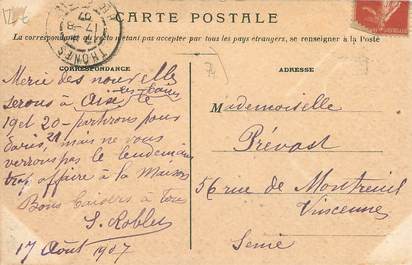 CARTE POSTALE
La correspondance au recto n'étant pas acceptée par tous les pays étrangers, se renseigner à la Poste
CORRESPONDANCE
ADRESSE
THONES
Merci des nouvelle
serons à Aix les-bains le
19 et 20 - partirons pour
Paris 21 mais ne vous
verrons pas le lendemain
trop affaire à la Maison
Bons baisers à tous
S. Robles
17 Août 1907
Mademoiselle
Prévost
56 rue de Montreuil
Vincennes
Seine